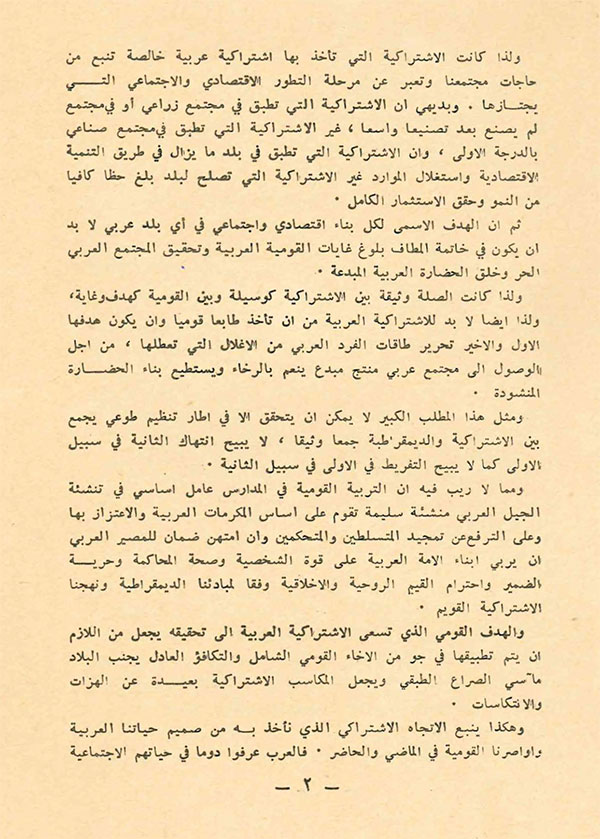 ولذا كانت الاشتراكية التي تأخذ بها اشتراكية عربية خالصة تنبع من
حاجات مجتمعنا وتعبر عن مرحلة التطور الاقتصادي والاجتماعي التـــي
يجتـازها . وبديهي ان الاشتراكية التي تطبق في مجتمع زراعي أو في مجتمع
لم يصنع بعد تصنيعا واسعا ، غير الاشتراكية التي تطبق في مجتمع صناعي
بالدرجة الاولى ، وان الاشتراكية التي تطبق في بلد ما يزال في طريق التنمية
الاقتصادية واستغلال الموارد غير الاشتراكية التي تصلح لبلد بلغ حظا كافيا
من النمو وحقق الاستثمار الكامل .
ثم ان الهدف الاسمى لكل بناء اقتصادي واجتماعي في أي بلد عربي لا بد
ان يكون في خاتمة المطاف بلوغ غايات القومية العربية وتحقيق المجتمع العربي
الحر وخلق الحضارة العربية المبدعة .
ولذا كانت الصلة وثيقة بين الاشتراكية كوسيلة وبين القومية كهدف وغاية،
ولذا ايضا لا بد للاشتراكية العربية من ان تأخذ طابعا قوميا وان يكون هدفها
الاول والاخير تحرير طاقات الفرد العربي من الاغلال التي تعطلها ، من اجل
الوصول الى مجتمع عربي منتج مبدع ينعم بالرخاء ويستطيع بناء الحضـــارة
المنشودة .
ومثل هذا المطلب الكبير لا يمكن ان يتحقق الا في اطار تنظيم طوعي يجمع
بين الاشتراكية والديمقراطية جمعا وثيقا ، لا يبيح انتهاك الثانية في سبيل
الاولى كما لا يبيح التفريط في الاولى في سبيل الثانية .
ومما لا ريب فيه ان التربية القومية في المدارس عامل اساسي في تنشئة
الجيل العربي منشئة سليمة تقوم على اساس المكرمات العربية والاعتزاز بها
وعلى الترفع عن تمجيد المتسلطين والمتحكمين وان امتهن ضمان للمصير العربي
ان يربي ابناء الامة العربية على قوة الشخصية وصحة المحاكمة وحريـــة
الضمير واحترام القيم الروحية والاخلاقية وفقا لمبادئنا الديمقراطية ونهجنا
الاشتراكية القويم .
والهدف القومي الذي تسعى الاشتراكية العربية الى تحقيقه يجعل من اللازم
ان يتم تطبيقها في جو من الاخاء القومي الشامل والتكافؤ العادل يجنب البلاد
مآسي الصراع الطبقي ويجعل المكاسب الاشتراكية بعيـــدة عن الهزات
والانتكاسات .
وهكذا ينبع الاتجاه الاشتراكي الذي نأخذ بـــه من صميم حياتنا العربية
واواصرنا القومية في الماضي والحاضر . فالعرب عرفوا دوما في حياتهم الاجتماعية
— ٢ —